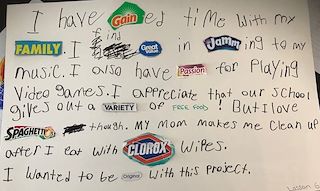 I have Gained time with my
FAMILY. I find Great Value in Jamming to my
music. I also have Passion for Playing
Video games. I appreciate that our school
gives out a VARIETY of FREE FOOD! But I love
SPAGHETTIOS though. My mom makes me clean up
after I eat with CLOROX wipes.
I wanted to be Original with this project.
Lesson 6